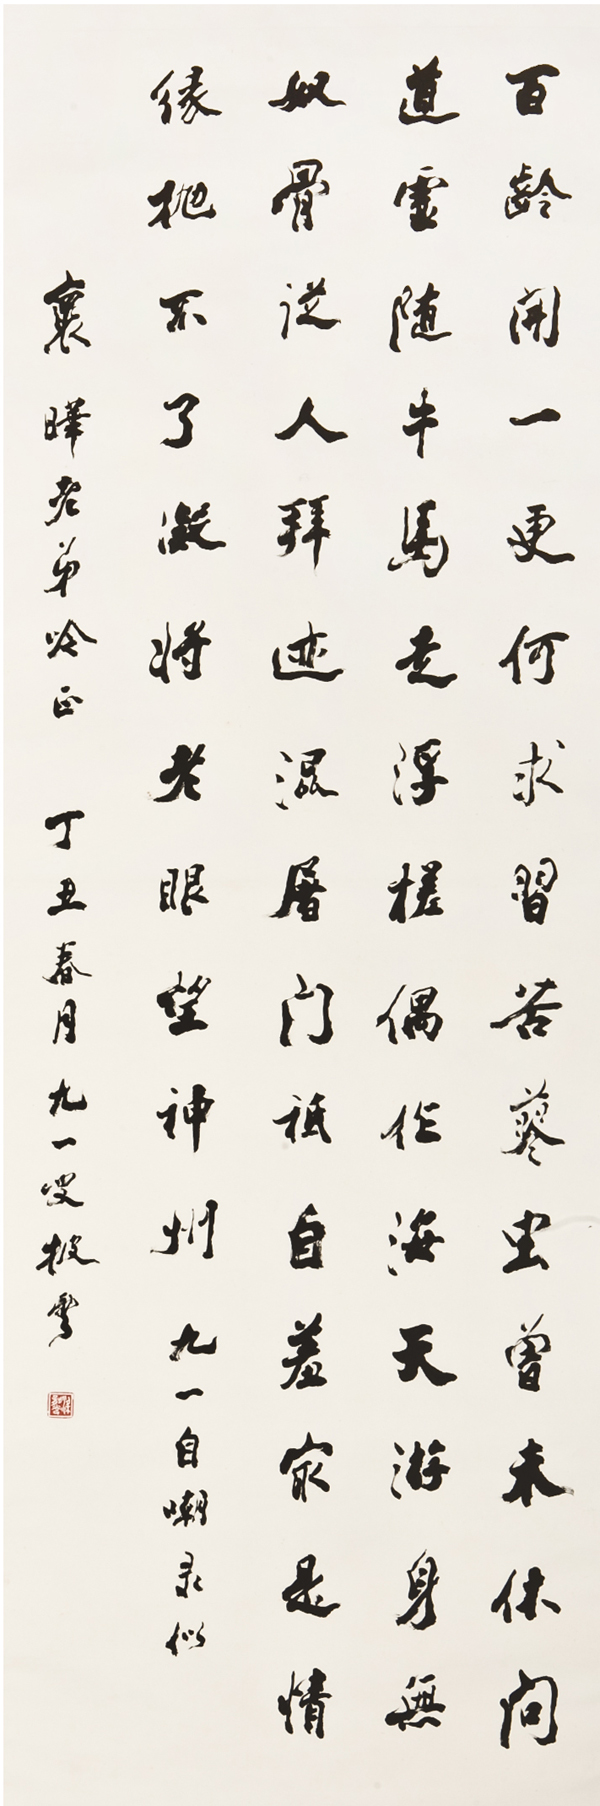 百齡開一更何求習苦蓼虫曾未休问
道靈随牛馬走浮槎偶作海天游身無
奴骨従人拜迹混屠门祇自羞家是情
缘抛不了凝将老眼望神州 九一自嘲录似
襄晔老弟吟正 丁丑春月 九一叟披云